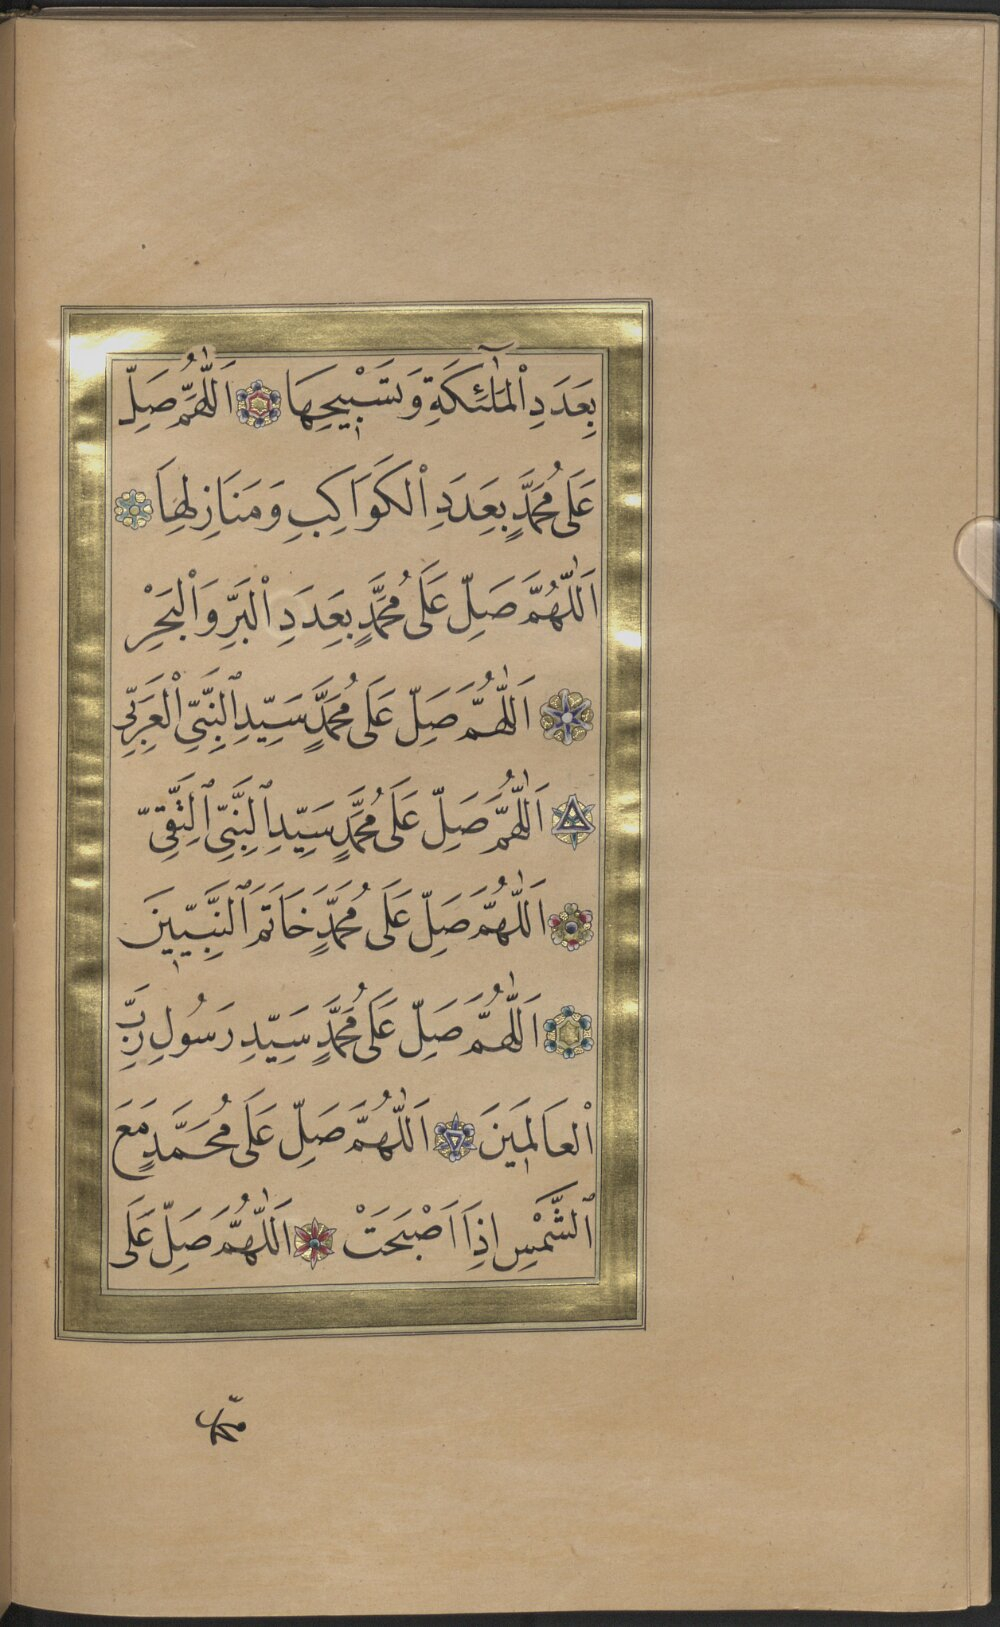 بِعَدَدِ الْمَلٰٓئِكَةِ وَتَسْبِيحِهَا اَللّٰهُمَّ صَلِّ
عَلَى مُحَمَّدٍ بِعَدَدِ الْكَوَاكِبِ وَمَنَازِلِهَا
اَللّٰهُمَّ صَلِّ عَلَى مُحَمَّدٍ بِعَدَدِ الْبَرِّ وَالْبَحْرِ
اَللّٰهُمَّ صَلِّ عَلَى مُحَمَّدٍ سَيِّدِ النَّبِيِّ الْعَرَبِيِّ
اَللّٰهُمَّ صَلِّ عَلَى مُحَمَّدٍ سَيِّدِ النَّبِيِّ التَّقِيِّ
اَللّٰهُمَّ صَلِّ عَلَى مُحَمَّدٍ خَاتَمَ النَّبِيِّينَ
اَللّٰهُمَّ صَلِّ عَلَى مُحَمَّدٍ سَيِّدِ رَسُولِ رَبِّ
الْعَالَمِينَ اَللّٰهُمَّ صَلِّ عَلَى مُحَمَّدٍ مَعَ
الشَّمْسِ اِذَا اَصْبَحَتْ اَللّٰهُمَّ صَلِّ عَلَى
محمد